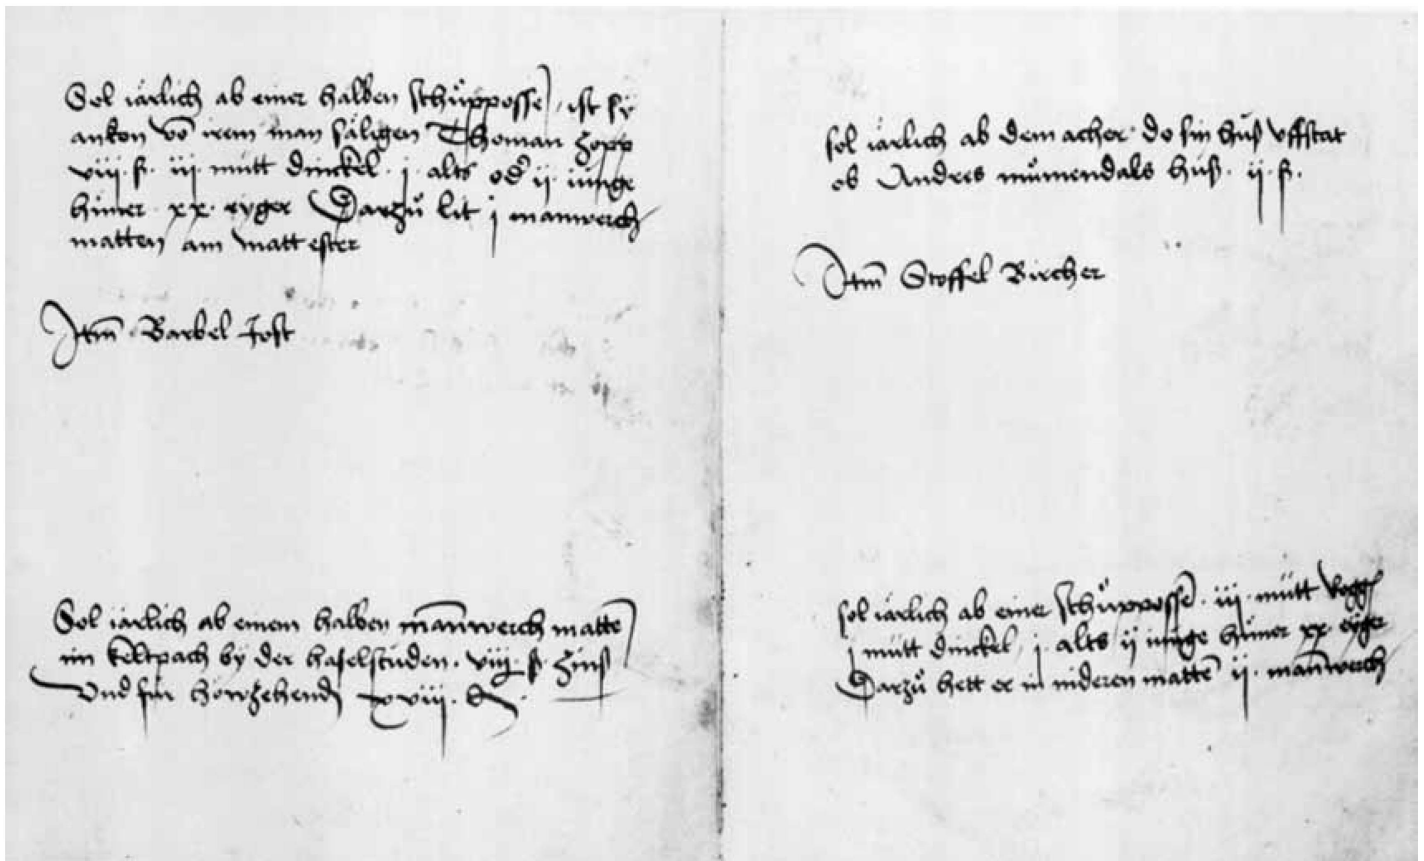 Sol iärlich ab einer halben schůpposse / ist sy
ankon vō irem man säligen Thoman Zopp
viii ß iii mütt dinckel · i · alts od ii iunge
hüner · xx · eyger Darzů lit i manwerch
matten am matt ester
Itm Barbel Jost
Sol iärlich ab einem halben man̄werch matte
im keltpach by der haselstuden · viij · ß · zinß
Vnd für höwzehend xviii · d
sol iärlich ab dem acher · do sin huß vffstat
ob Andres můmendals huß · ii · ß ·
Itm Stoffel Bircher
sol iärlich ab einer schůpposse · iii · mütt rogg
i mütt dinckel / i · alts ii iunge hüner xx eyger
Darzů hett er in nideren matte ii · man̄werch